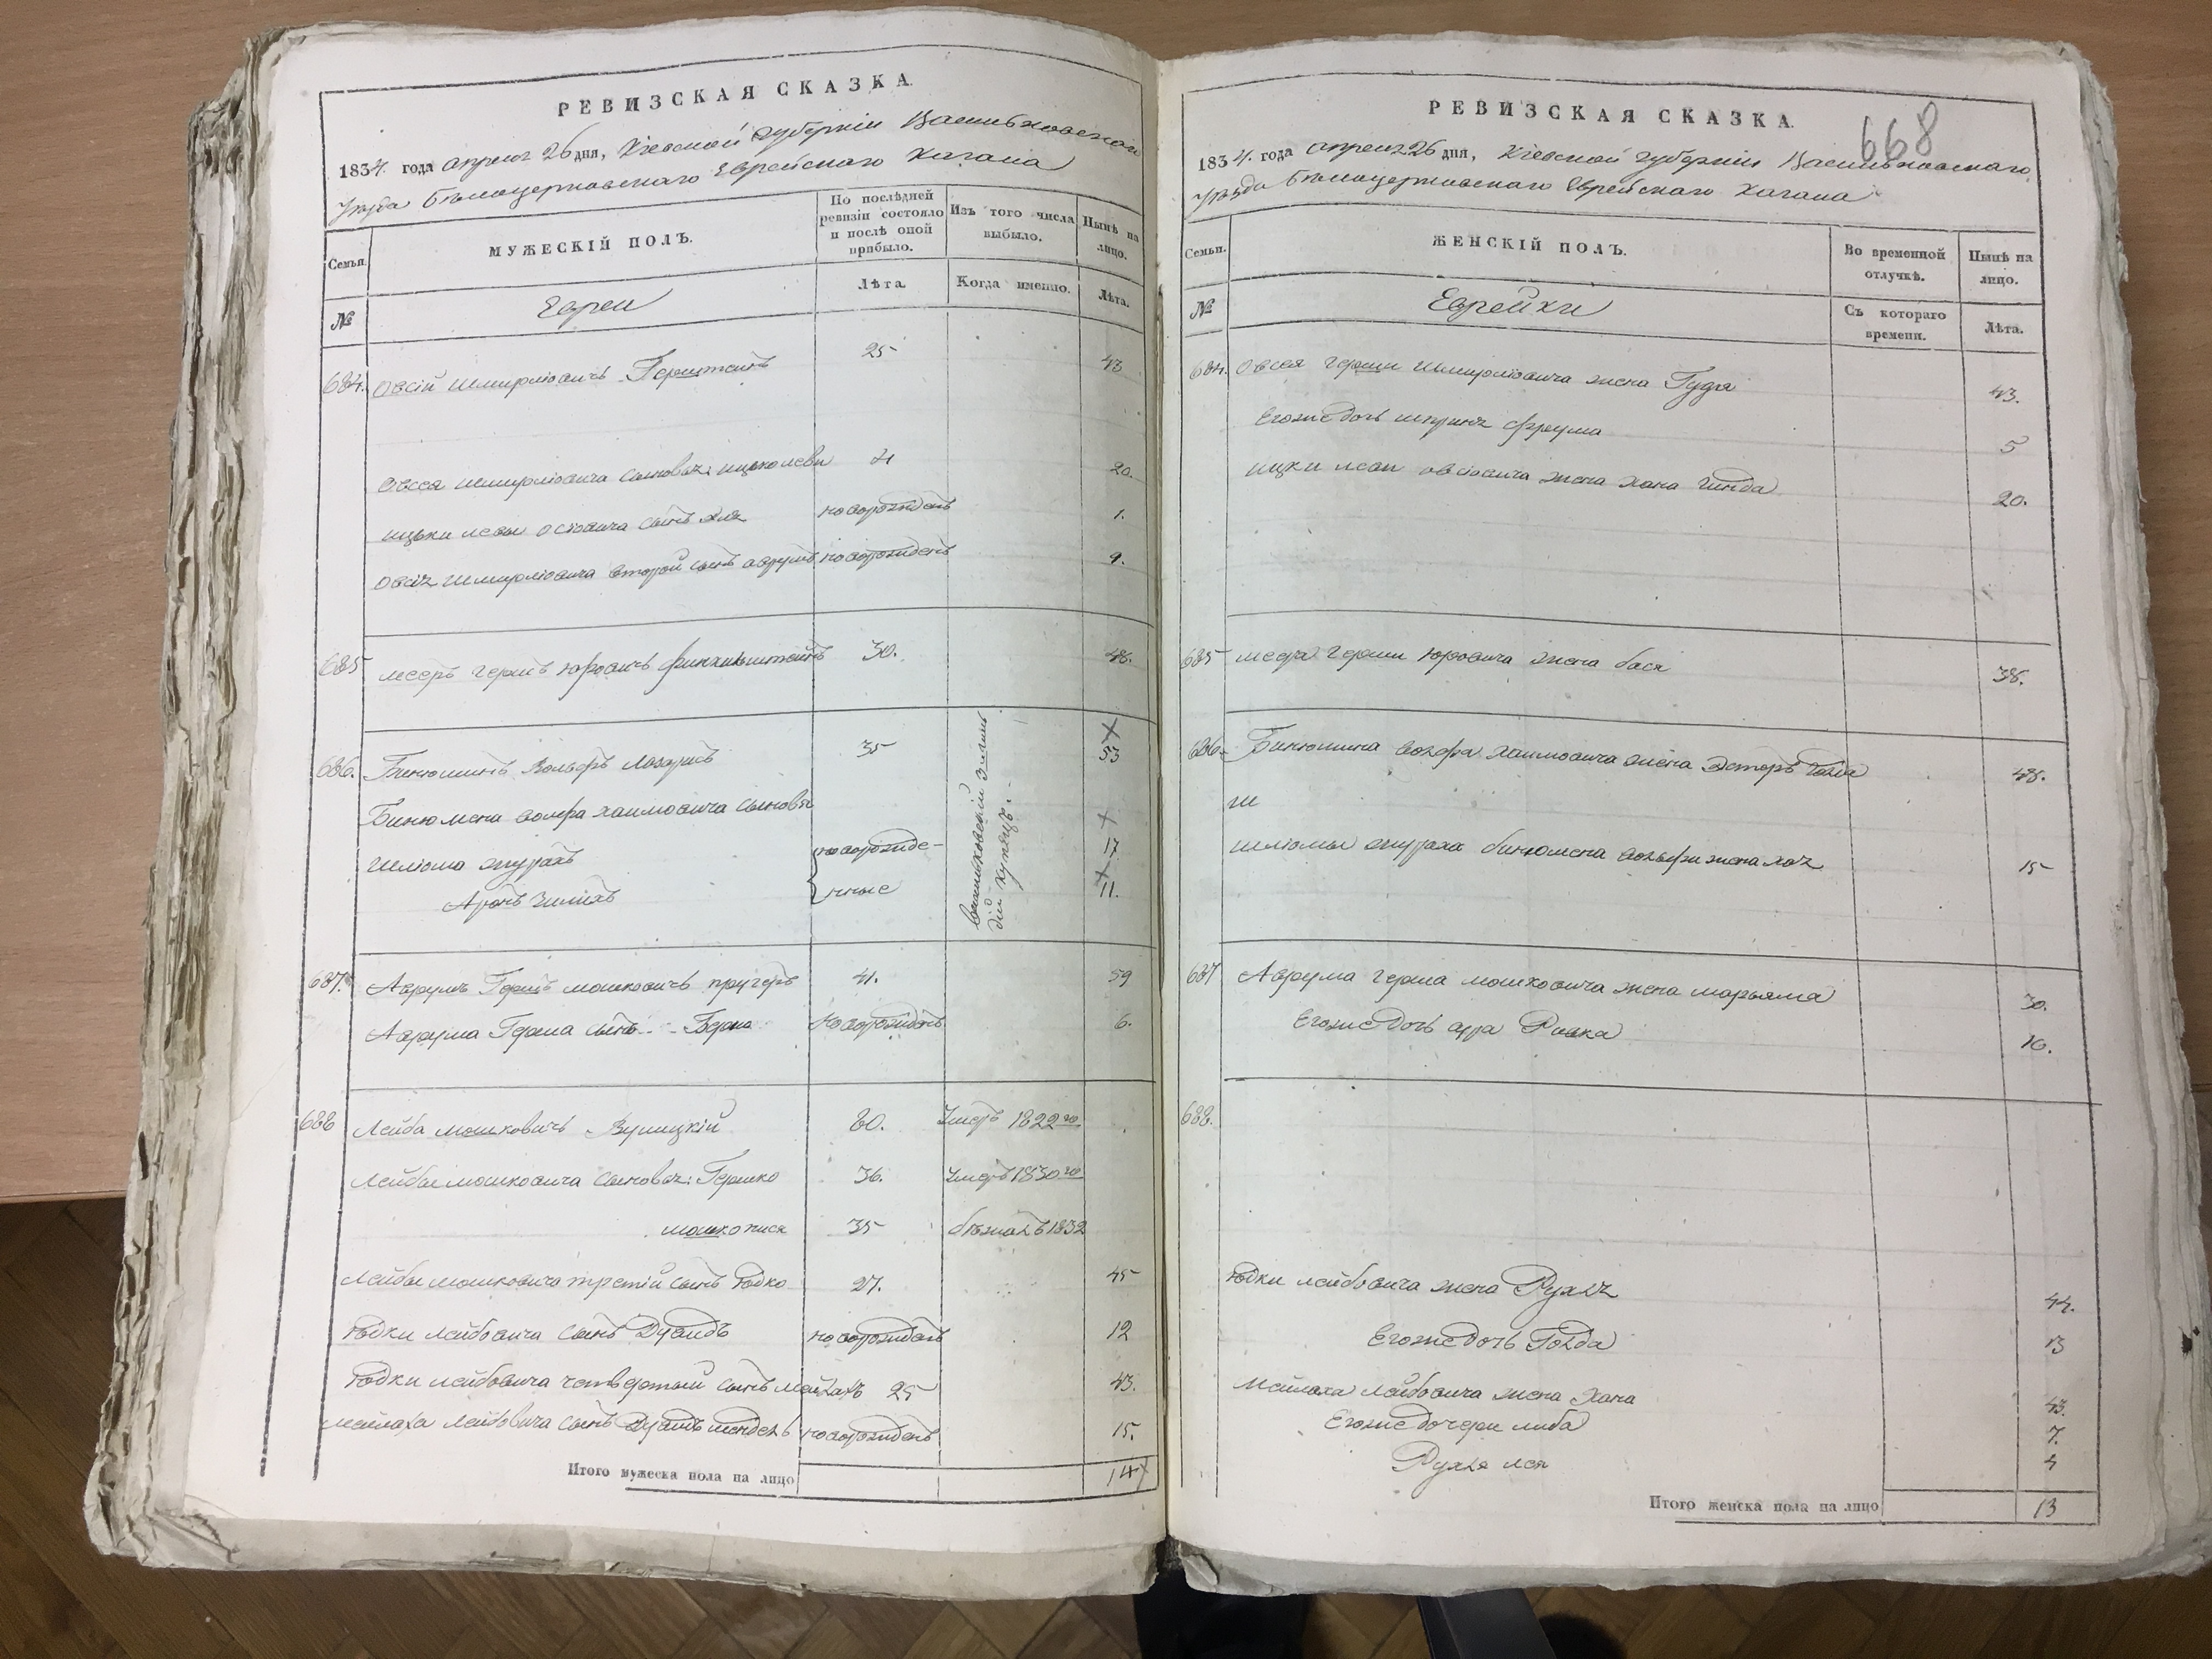 РЕВИЗСКАЯ СКАЗКА.
1834. года апреля 26 дня, Кіевской губерніи Васильковскаго
Уезда Белоцерковскаго Еврейскаго Кагала
Семьи.
МУЖЕСКІЙ ПОЛЪ.
По последней ревизіи состояло и после оной прибыло.
Изъ того числа выбыло.
Ныне на лицо.
№
Евреи
Лета.
Когда именно.
Лета.
684. Овсій Шмирліовичъ Герштенъ 25 43
Овсея Шмирліовича сыновья: Ицко леви 4 20.
Ицьки левы Осіовича сынъ новорожденъ 1.
Овсія Шмирліовича второй сынъ аврумъ новорожденъ 9.
685 мееръ гершъ Юровичъ финкильштейнъ 30. 48.
686. Бинюминъ Вольфъ 35 53
Бинюмена волфа хаимовича сыновья
шліома новорожде- 17
Аронъ нные 11.
687. Аврумъ Гершъ мошковичъ 41. 59
Аврума Герша сынъ Берко новорожденъ 6.
688 Лейба мошковичъ 80. Умеръ 1822го
Лейбы мошковича сыновья: Гершко 36. Умеръ 1830го
мошко 35 бежалъ 1832
Лейбы мошковича третій сынъ Юдко 27. 45
Юдки Лейбовича сынъ Дувидъ новорожденъ 12
Юдки Лейбовича четвертый сынъ мейлахъ 25 43.
мейлаха Лейбовича сынъ Дувидъ мендель новорожденъ 15.
Итого мужеска пола на лицо 14
668
РЕВИЗСКАЯ СКАЗКА.
1834. года апреля 26 дня, Кіевской губерніи Васильковскаго
Уезда Белоцерковскаго Еврейскаго Кагала
Семьи.
ЖЕНСКІЙ ПОЛЪ.
Во временной отлучке.
Ныне на лицо.
№
Еврейки
Съ котораго времени.
Лета.
684. Овсея герши Шмирліовича жена Гудя 43.
Егоже дочь шприня фрума 5
ицки леви овсіовича жена хана гинда 20.
685 меера герши Юровича жена бася 38.
686. Бинюмина волфа хаимовича жена Эстеръ 48.
ш
шліомы бинюмена вольфи жена хая 15
687 Аврума герша мошковича жена марьяма 30.
Егоже дочь Ривка 10.
688.
Юдки лейбовича жена Рухля 44.
Егоже дочь Голда 13
Мейлаха Лейбовича жена Хана 43.
Егоже дочери либа 7.
Рухля лея 4
Итого женска пола на лицо 13